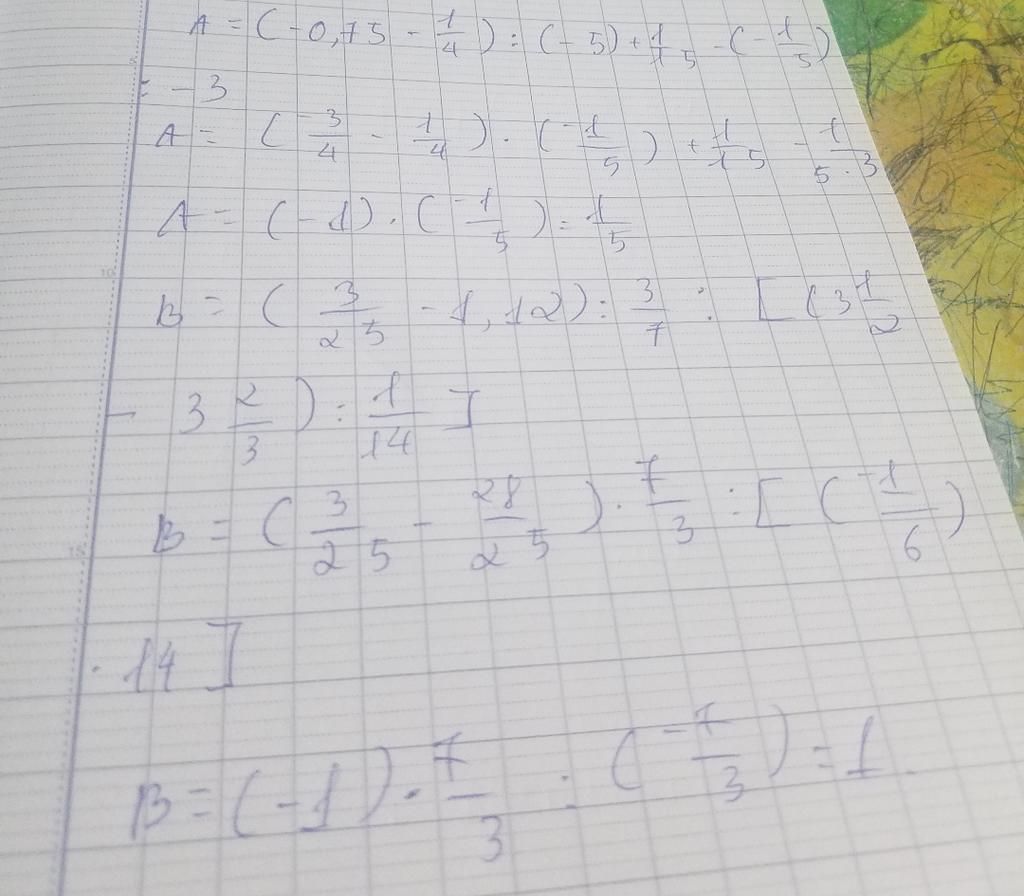 A = (-0,75 - 1/4) : (-5) + 1/15 - (-1/5)
: -3
A = (-3/4 - 1/4) . (-1/5) + 1/15 - 1/5.3
A = (-1) . (-1/5) = 1/5
B = (3/25 - 1,12) : 3/7 : [(3 1/2
- 3 2/3) : 1/14]
B = (3/25 - 28/25) . 7/3 : [(-1/6)
. 14]
B = (-1) . 7/3 : (-7/3) = 1.